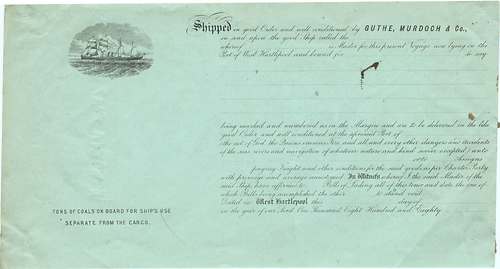 Shipped in good Order and well conditioned by GUTHE, MURDOCH & Co.,
in and upon the good Ship called the
whereof is Master for this present Voyage now lying in the
Port of West Hartlepool and bound for to say
being marked and numbered as in the Margin and are to be delivered in the like
good Order and well conditioned at the aforesaid Port of
the act of God, the Queens enemies, Fire and all and every other dangers and accidents
of the seas rivers and navigation of whatever nature and kind soever excepted) unto
or to Assigns
paying Freight and other conditions for the said goods as per Charter Party
with primage and average accustomed. In Witness whereof I the said Master of the
said Ship have affirmed to Bills of Lading all of this tenor and date the one of
which Bills being accomplished the other to stand void.
Dated in West Hartlepool this day of
in the year of our Lord One Thousand Eight Hundred and Eighty
TONS OF COALS ON BOARD FOR SHIP'S USE
SEPARATE FROM THE CARGO.